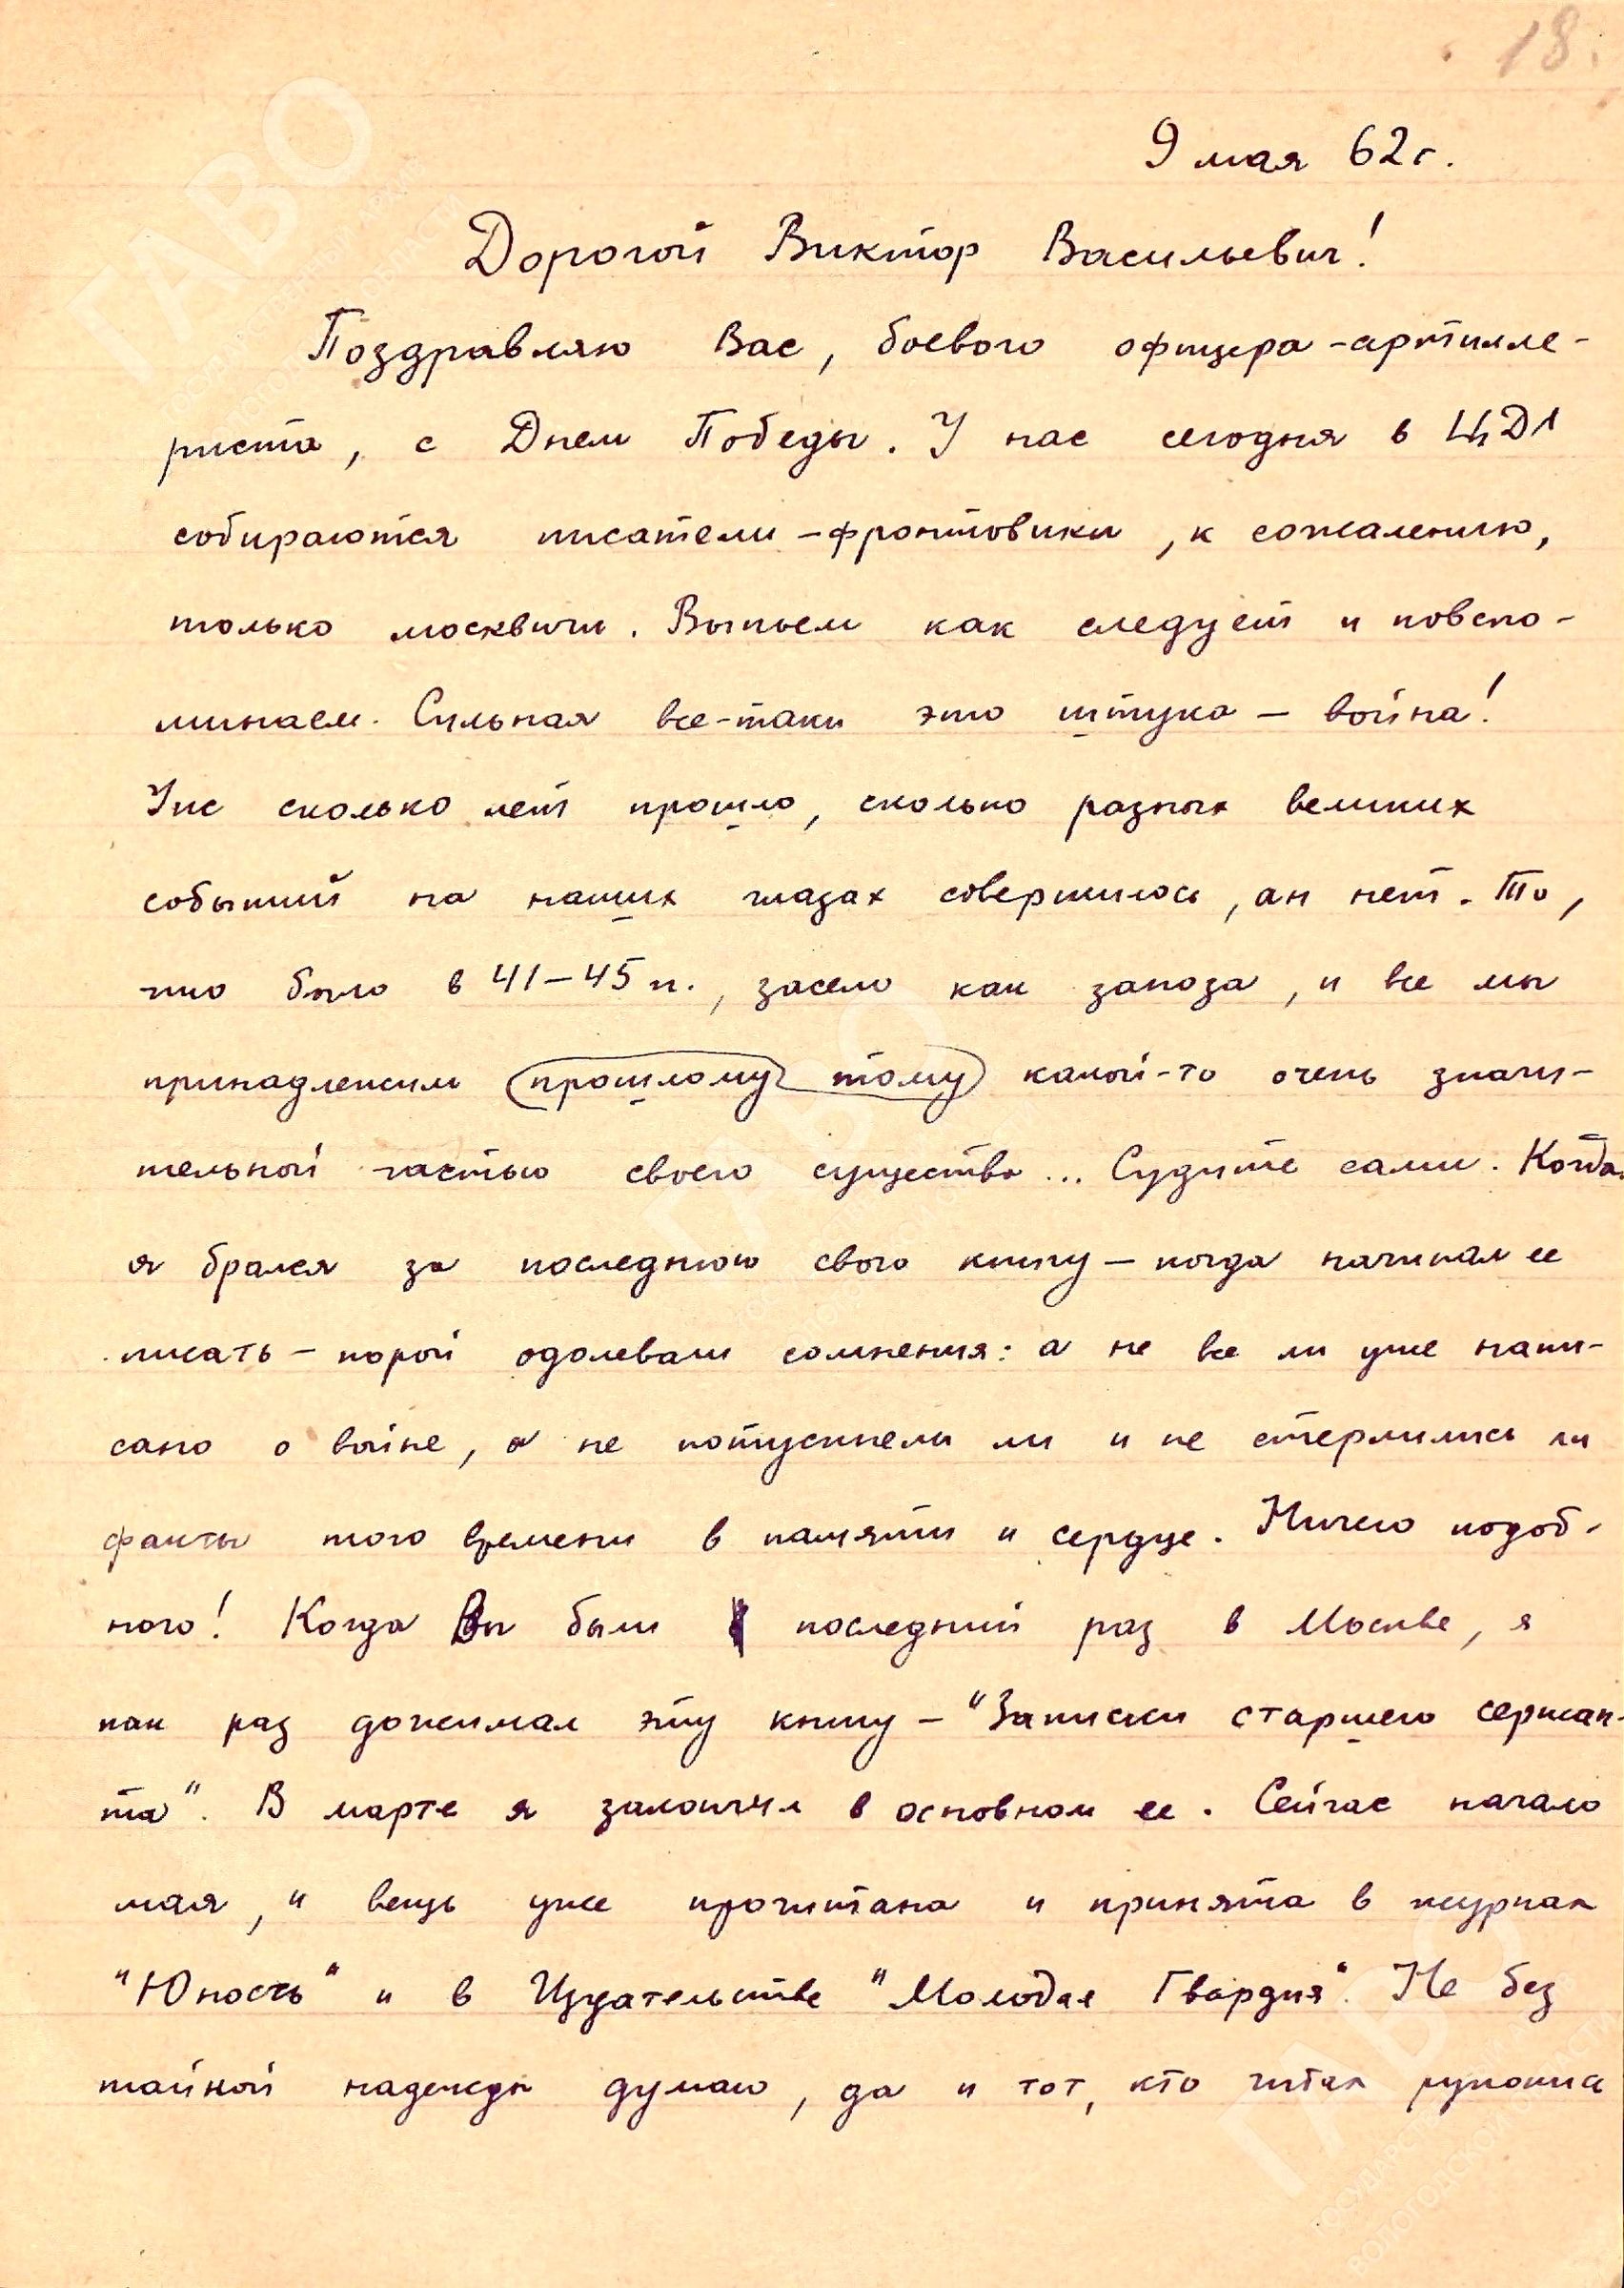 18.
9 мая 62 г.
Дорогой Виктор Васильевич!
Поздравляю Вас, боевого офицера-артилле-
риста, с Днем Победы. У нас сегодня в ЦДЛ
собираются писатели-фронтовики, к сожалению,
только москвичи. Выпьем как следует и повспо-
минаем. Сильная все-таки это штука — война!
Уже сколько лет прошло, сколько разных великих
событий на наших глазах совершилось, ан нет. То,
что было в 41–45 гг., засело как заноза, и все мы
принадлежим прошлому тому какой-то очень значи-
тельной частью своего существа... Судите сами. Когда
я брался за последнюю свою книгу — когда начинал ее
писать — порой одолевали сомнения: а не все ли уже напи-
сано о войне, а не потускнели ли и не стерлились ли
факты того времени в памяти и сердце. Ничего подоб-
ного! Когда Вы были последний раз в Москве, я
как раз дожимал эту книгу — "Записки старшего сержан-
та". В марте я закончил в основном ее. Сейчас начало
мая, и вещь уже прочитана и принята в журнал
"Юность" и в Издательстве "Молодая Гвардия". Не без
тайной надежды думаю, да и тот, кто читал рукопись
ГАВО
ГАВО
ГАВО